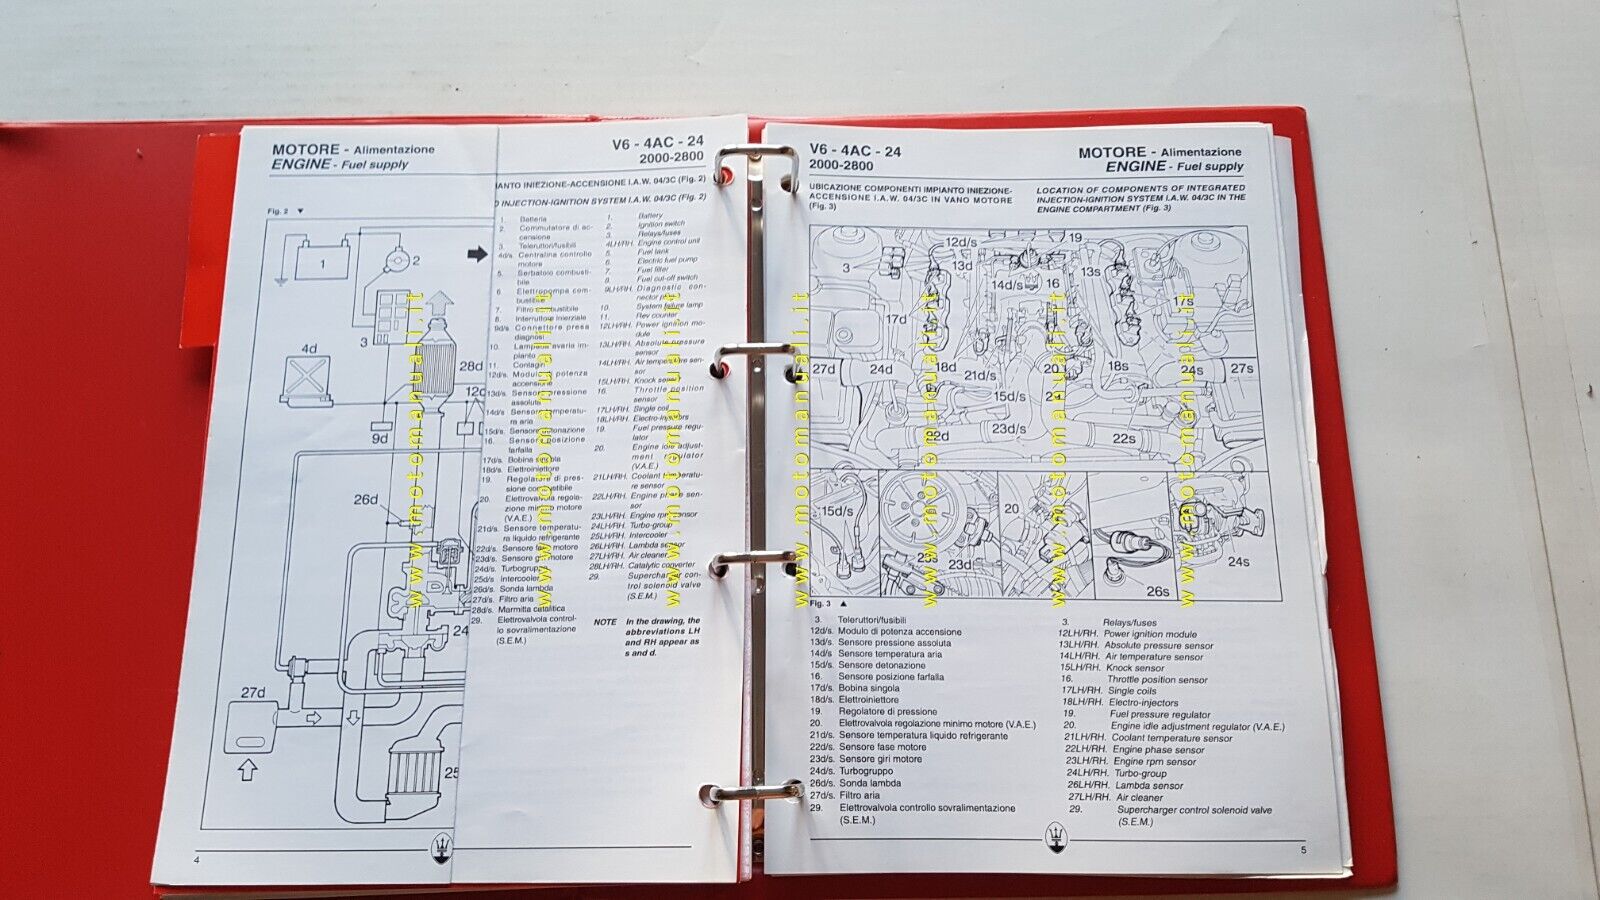 MOTORE - Alimentazione
ENGINE - Fuel supply
V6 - 4AC - 24
2000-2800
IANTO INIEZIONE-ACCENSIONE I.A.W. 04/3C (Fig. 2)
INJECTION-IGNITION SYSTEM I.A.W. 04/3C (Fig. 2)
Fig. 2
1
2
3
4d
28d
12d
9d
26d
24
27d
25
1. Batteria
2. Commutatore di ac-
censione
3. Teleruttori/fusibili
4d/s. Centralina controllo
motore
5. Serbatoio combusti-
bile
6. Elettropompa com-
bustibile
7. Filtro combustibile
8. Interruttore inerziale
9d/s Connettore presa
diagnosi
10. Lampada avaria im-
pianto
11. Contagiri
12d/s. Modulo di potenza
accensione
13d/s. Sensore pressione
assoluta
14d/s Sensore temperatu-
ra aria
15d/s. Sensore detonazione
16. Sensore posizione
farfalla
17d/s. Bobina singola
18d/s. Elettroiniettore
19. Regolatore di pres-
sione combustibile
20. Elettrovalvola regola-
zione minimo motore
(V.A.E.)
21d/s. Sensore temperatu-
ra liquido refrigerante
22d/s. Sensore fase motore
23d/s. Sensore giri motore
24d/s. Turbogruppo
25d/s Intercooler
26d/s. Sonda lambda
27d/s. Filtro aria
28d/s. Marmitta catalitica
29. Elettrovalvola control-
lo sovralimentazione
(S.E.M.)
1. Battery
2. Ignition switch
3. Relays/fuses
4LH/RH. Engine control unit
5. Fuel tank
6. Electric fuel pump
7. Fuel filter
8. Fuel cut-off switch
9LH/RH. Diagnostic con-
nector
10. System failure lamp
11. Rev counter
12LH/RH. Power ignition mo-
dule
13LH/RH. Absolute pressure
sensor
14LH/RH. Air temperature sen-
sor
15LH/RH. Knock sensor
16. Throttle position
sensor
17LH/RH. Single coil
18LH/RH. Electro-injectors
19. Fuel pressure regu-
lator
20. Engine idle adjust-
ment regulator
(V.A.E.)
21LH/RH. Coolant temperatu-
re sensor
22LH/RH. Engine phase sen-
sor
23LH/RH. Engine rpm sensor
24LH/RH. Turbo-group
25LH/RH. Intercooler
26LH/RH. Lambda sensor
27LH/RH. Air cleaner
28LH/RH. Catalytic converter
29. Supercharger con-
trol solenoid valve
(S.E.M.)
NOTE In the drawing, the
abbreviations LH
and RH appear as
s and d.
4
V6 - 4AC - 24
2000-2800
MOTORE - Alimentazione
ENGINE - Fuel supply
UBICAZIONE COMPONENTI IMPIANTO INIEZIONE-
ACCENSIONE I.A.W. 04/3C IN VANO MOTORE
(Fig. 3)
LOCATION OF COMPONENTS OF INTEGRATED
INJECTION-IGNITION SYSTEM I.A.W. 04/3C IN THE
ENGINE COMPARTMENT (Fig. 3)
12d/s
19
3
13d
13s
14d/s
16
17s
17d
27d
24d
18d
21d/s
20
18s
24s
27s
15d/s
22d
23d/s
22s
15d/s
23s
23d
20
26s
24s
Fig. 3
3. Teleruttori/fusibili
12d/s. Modulo di potenza accensione
13d/s. Sensore pressione assoluta
14d/s Sensore temperatura aria
15d/s. Sensore detonazione
16. Sensore posizione farfalla
17d/s. Bobina singola
18d/s. Elettroiniettore
19. Regolatore di pressione
20. Elettrovalvola regolazione minimo motore (V.A.E.)
21d/s. Sensore temperatura liquido refrigerante
22d/s. Sensore fase motore
23d/s. Sensore giri motore
24d/s. Turbogruppo
26d/s. Sonda lambda
27d/s. Filtro aria
29. Elettrovalvola controllo sovralimentazione
(S.E.M.)
3. Relays/fuses
12LH/RH. Power ignition module
13LH/RH. Absolute pressure sensor
14LH/RH. Air temperature sensor
15LH/RH. Knock sensor
16. Throttle position sensor
17LH/RH. Single coils
18LH/RH. Electro-injectors
19. Fuel pressure regulator
20. Engine idle adjustment regulator (V.A.E.)
21LH/RH. Coolant temperature sensor
22LH/RH. Engine phase sensor
23LH/RH. Engine rpm sensor
24LH/RH. Turbo-group
26LH/RH. Lambda sensor
27LH/RH. Air cleaner
29. Supercharger control solenoid valve
(S.E.M.)
5
www.motomanuali.it
www.motomanuali.it
www.motomanuali.it
www.motomanuali.it
www.motomanuali.it
www.motomanuali.it
www.motomanuali.it